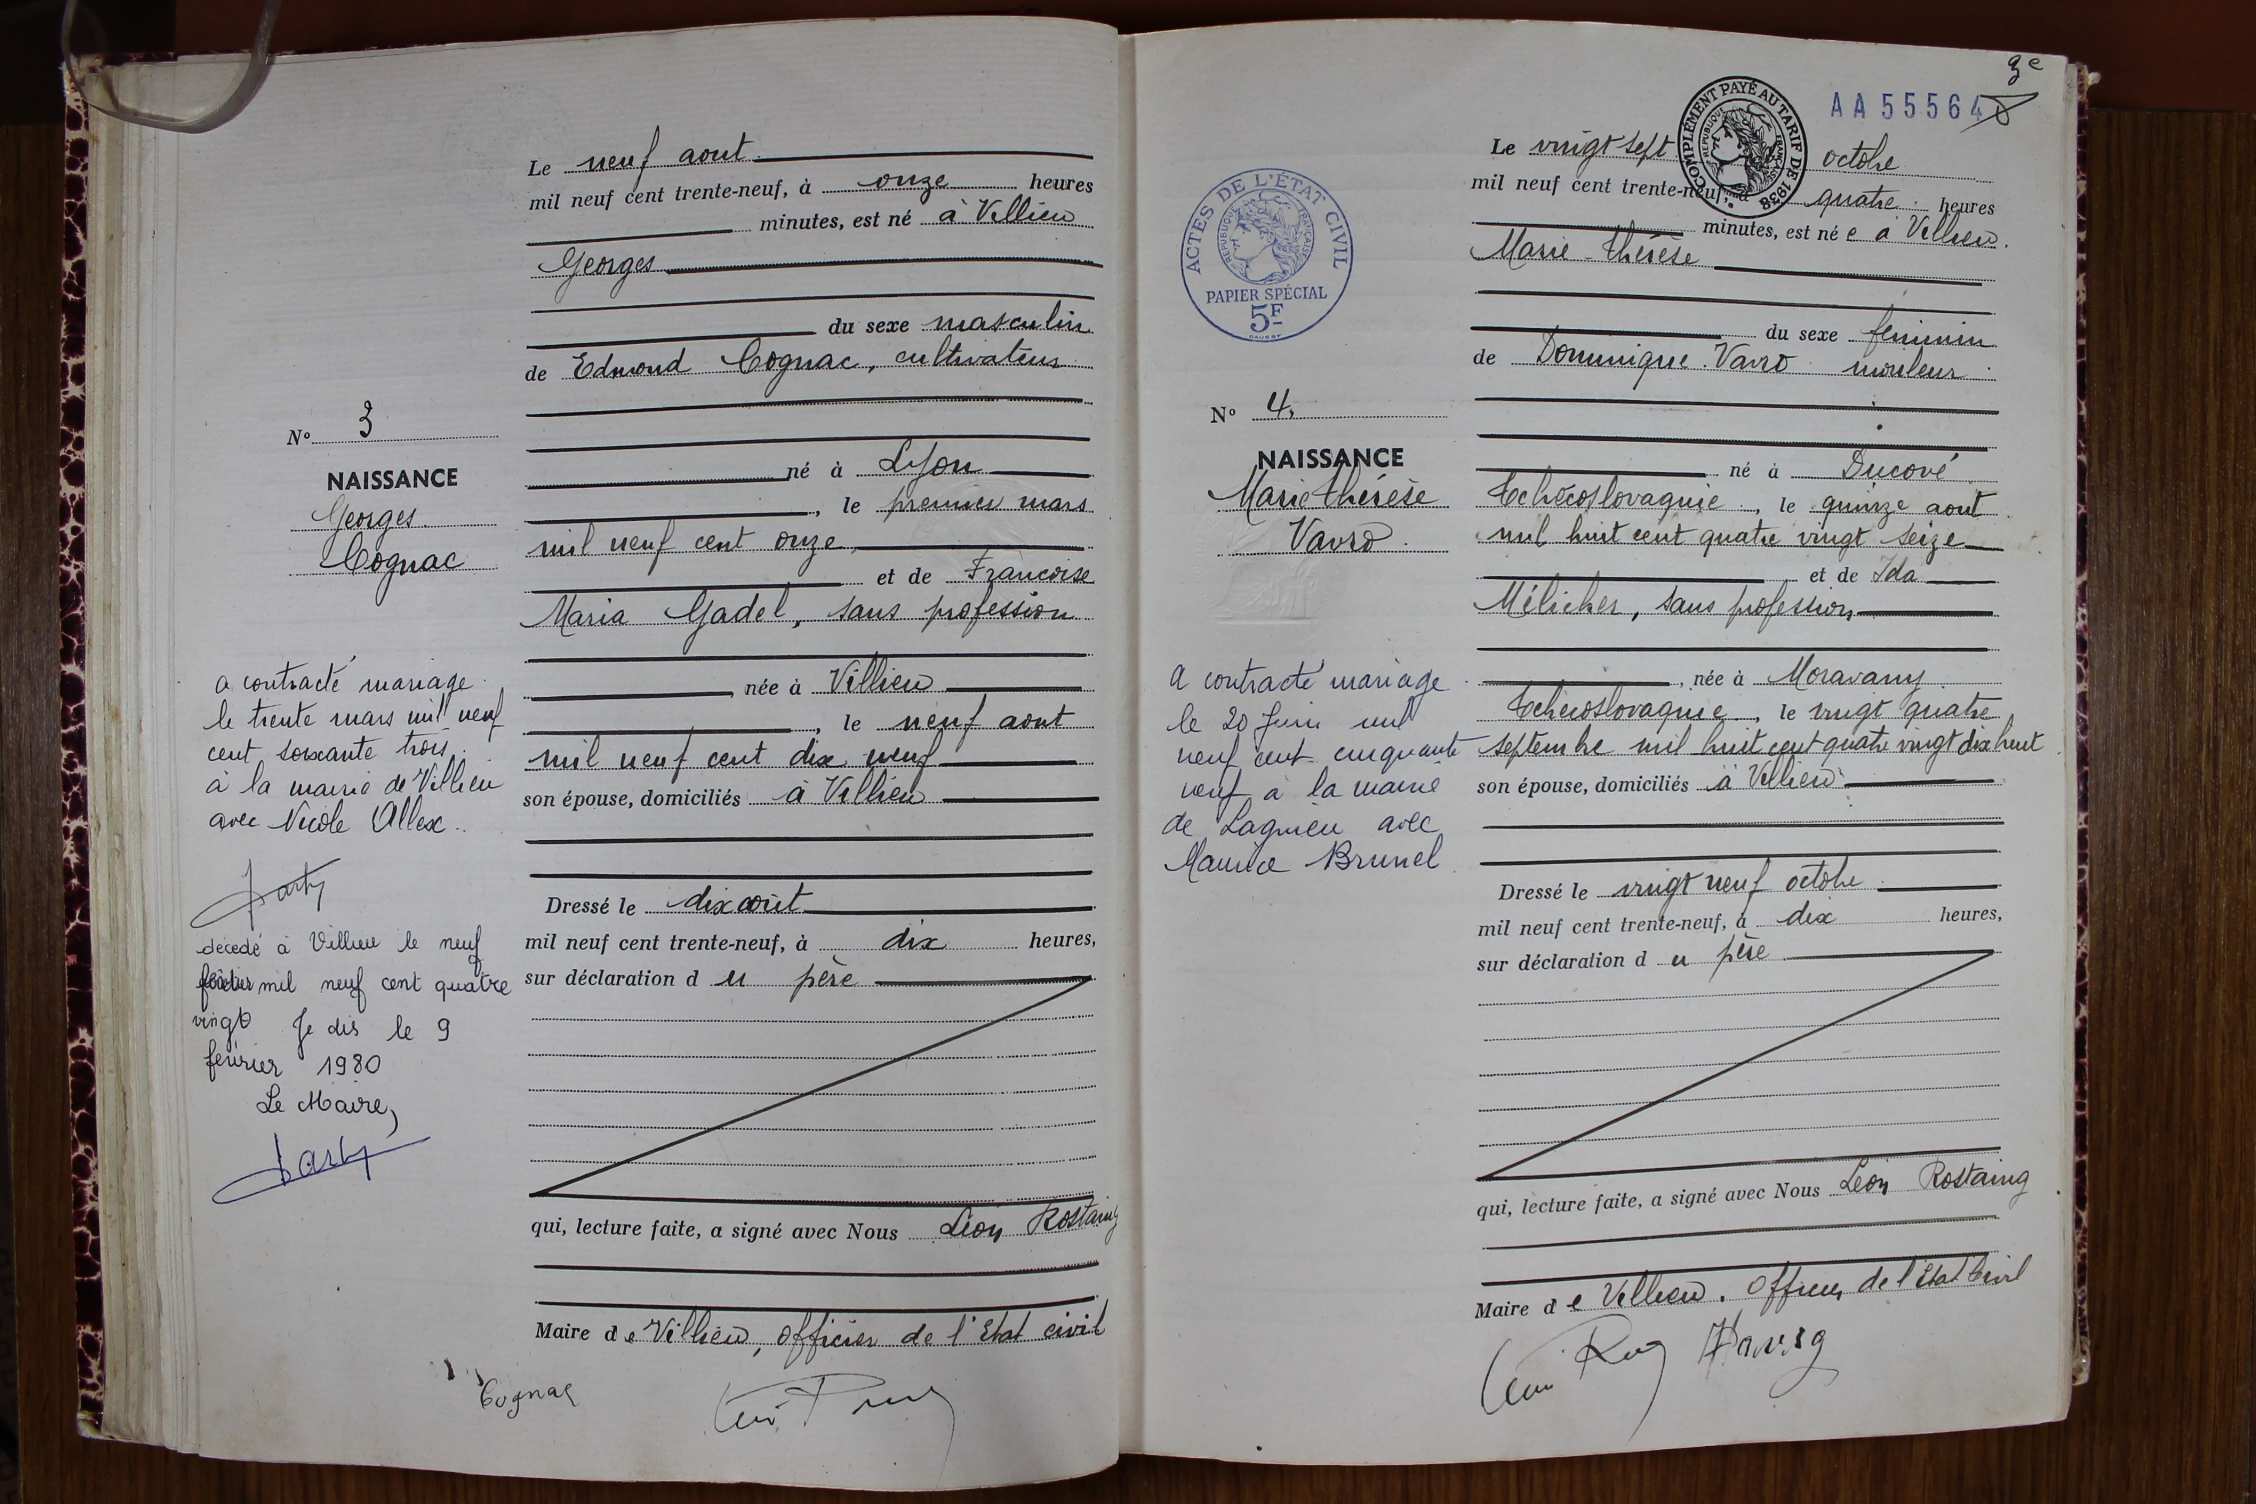 Le neuf aout
mil neuf cent trente-neuf, à onze heures
minutes, est né à Villieu
Georges
du sexe masculin
de Edmond Cognac, cultivateur
né à Lyon
, le premier mars
mil neuf cent onze
et de Françoise
Maria Gadel, sans profession
née à Villieu
, le neuf aout
mil neuf cent dix neuf
son épouse, domiciliés à Villieu
Dressé le dix août
mil neuf cent trente-neuf, à dix heures,
sur déclaration d u père
qui, lecture faite, a signé avec Nous Léon Rostaing
Maire d e Villieu, officier de l'Etat civil
Cognac
N° 3
NAISSANCE
Georges
Cognac
a contracté mariage
le trente mars mil neuf
cent soixante trois
à la mairie de Villieu
avec Nicole Allex.
décédé à Villieu le neuf
février mil neuf cent quatre
vingt Je dis le 9
février 1980
Le Maire,
3e
AA 55564
COMPLÉMENT PAYÉ AU TARIF DE 1938
RÉPUBLIQUE FRANÇAISE
Le vingt sept octobre
mil neuf cent trente-neuf, à quatre heures
minutes, est né e à Villieu.
Marie-thérèse
du sexe féminin
de Dominique Vavro mouleur
né à Ducové
Tchécoslovaquie, le quinze aout
mil huit cent quatre vingt seize
et de Ida
Mélicher, sans profession
, née à Moravany
Tchécoslovaquie, le vingt quatre
septembre mil huit cent quatre vingt dix huit
son épouse, domiciliés à Villieu
Dressé le vingt neuf octobre
mil neuf cent trente-neuf, à dix heures,
sur déclaration d u père
qui, lecture faite, a signé avec Nous Léon Rostaing
Maire d e Villieu. Officier de l'Etat Civil
ACTES DE L'ÉTAT CIVIL
RÉPUBLIQUE FRANÇAISE
PAPIER SPÉCIAL
5F
N° 4.
NAISSANCE
Marie thérèse
Vavro
a contracté mariage
le 20 Juin mil
neuf cent cinquante
neuf à la mairie
de Lagnieu avec
Maurice Brunel